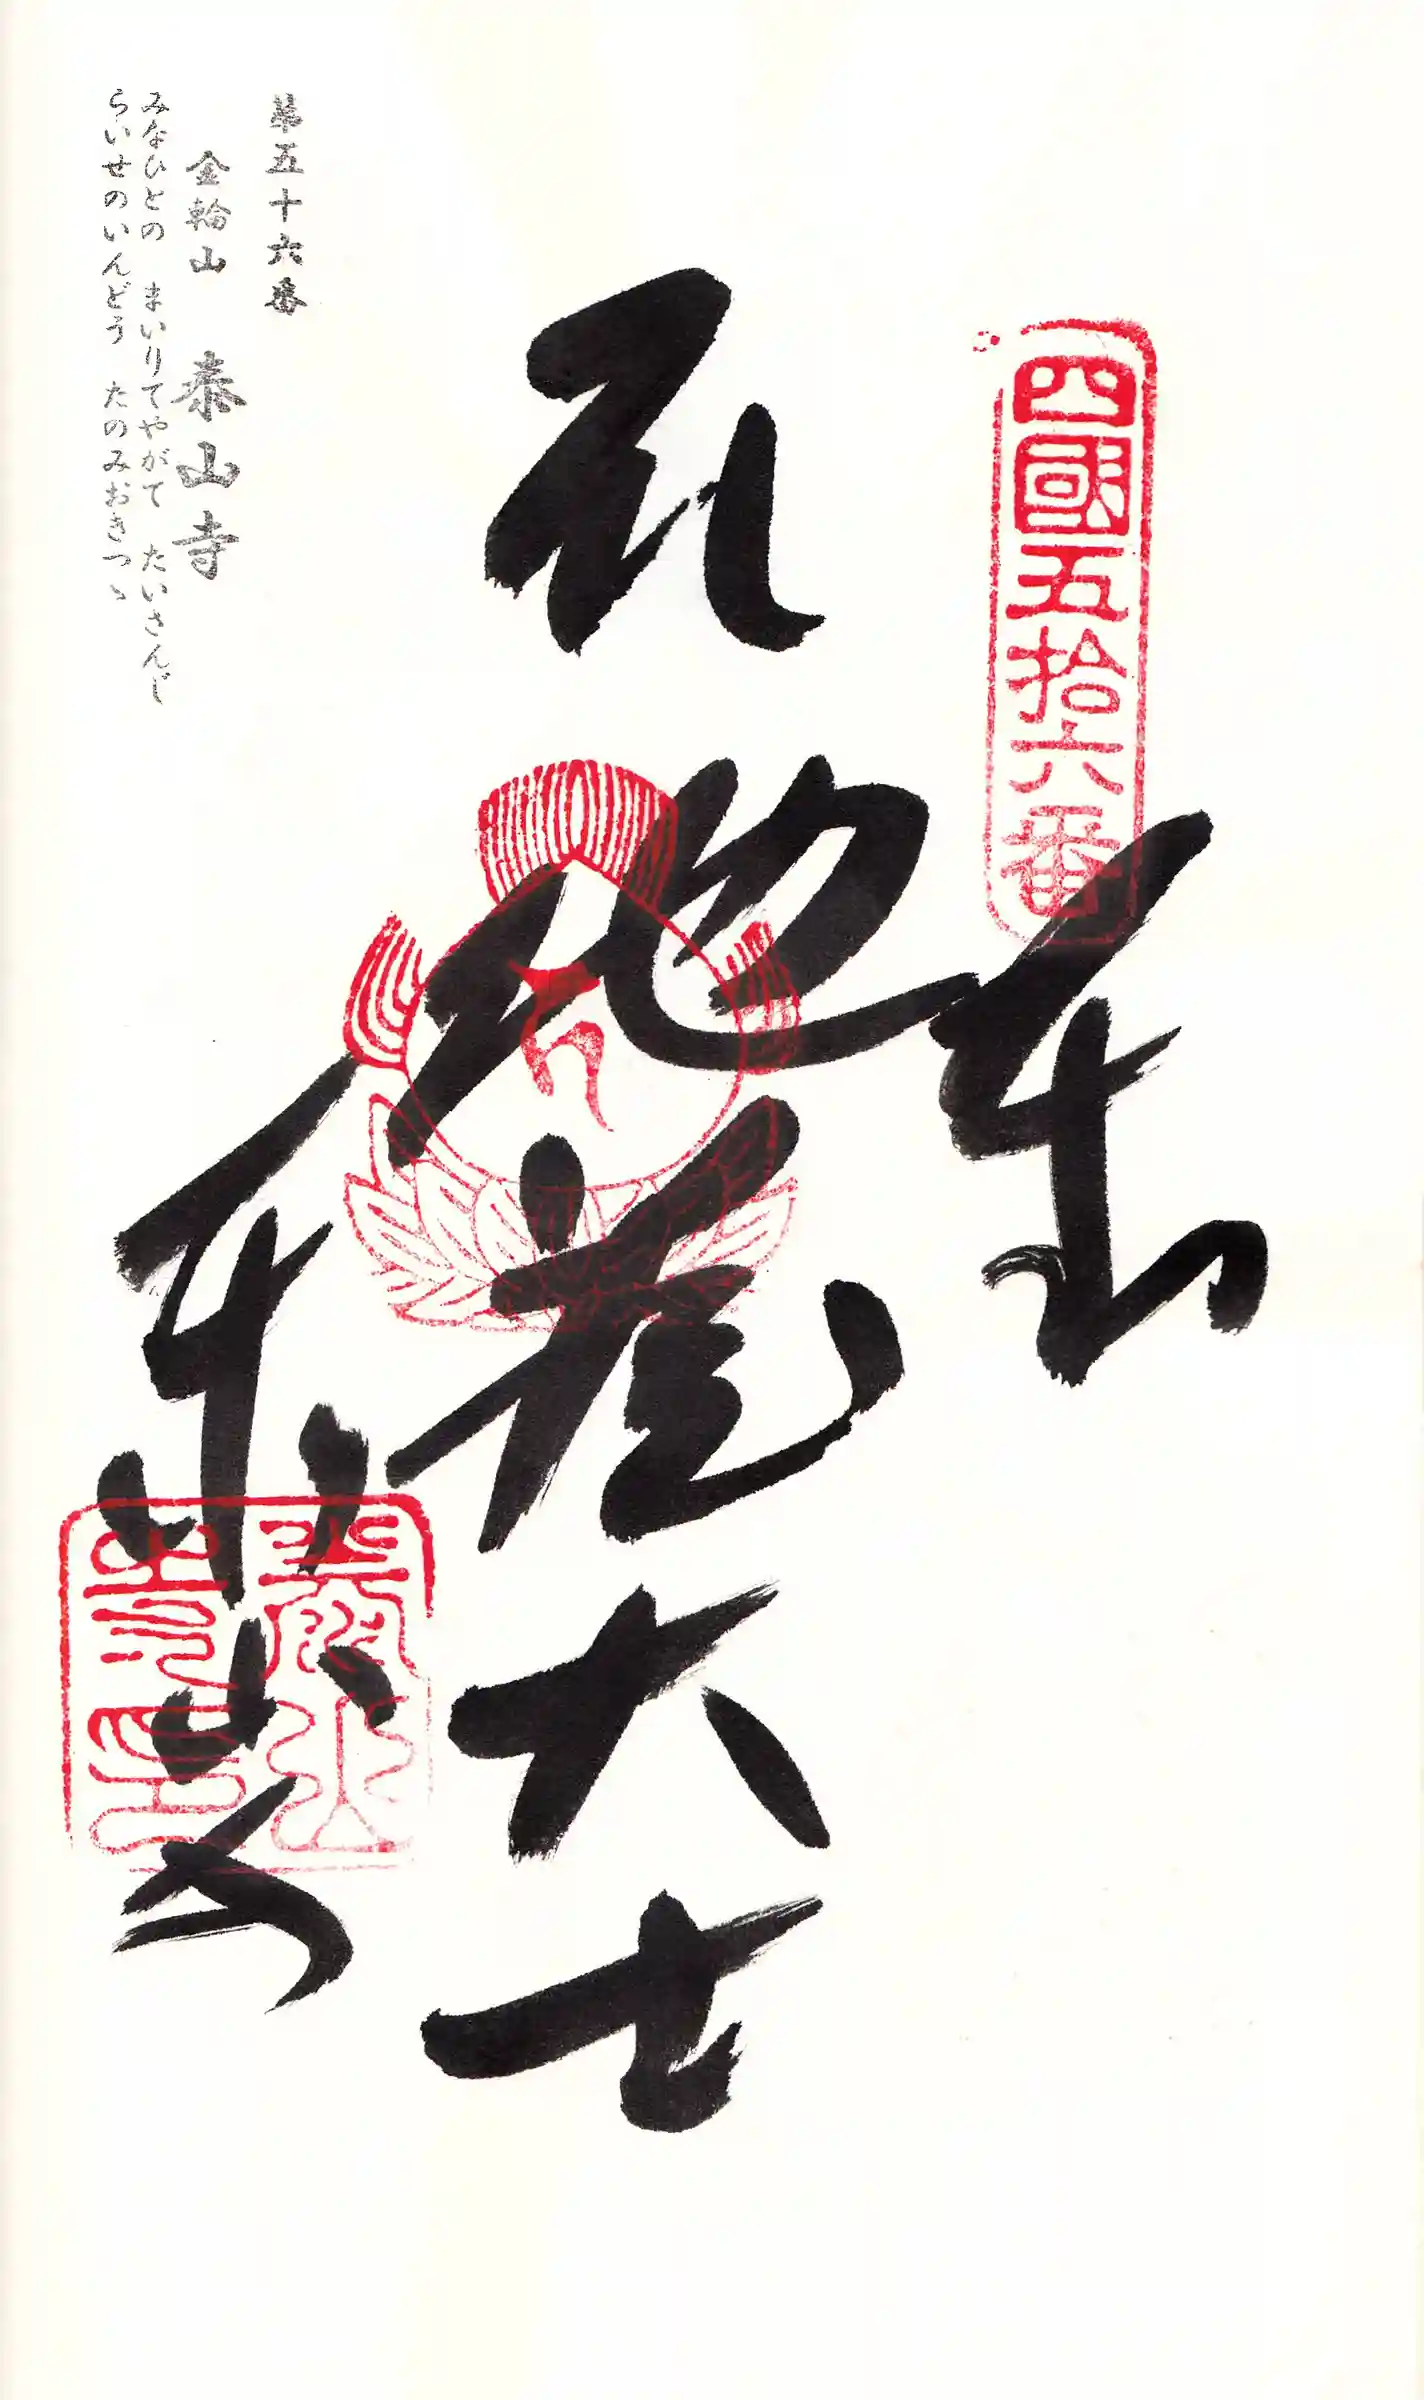 四國五拾六番
奉
地蔵大士
泰山寺
泰山寺印
第五十六番
金輪山 泰山寺
みなひとの まいりてやがて たいさんじ
らいせのいんどう たのみおきつゝ